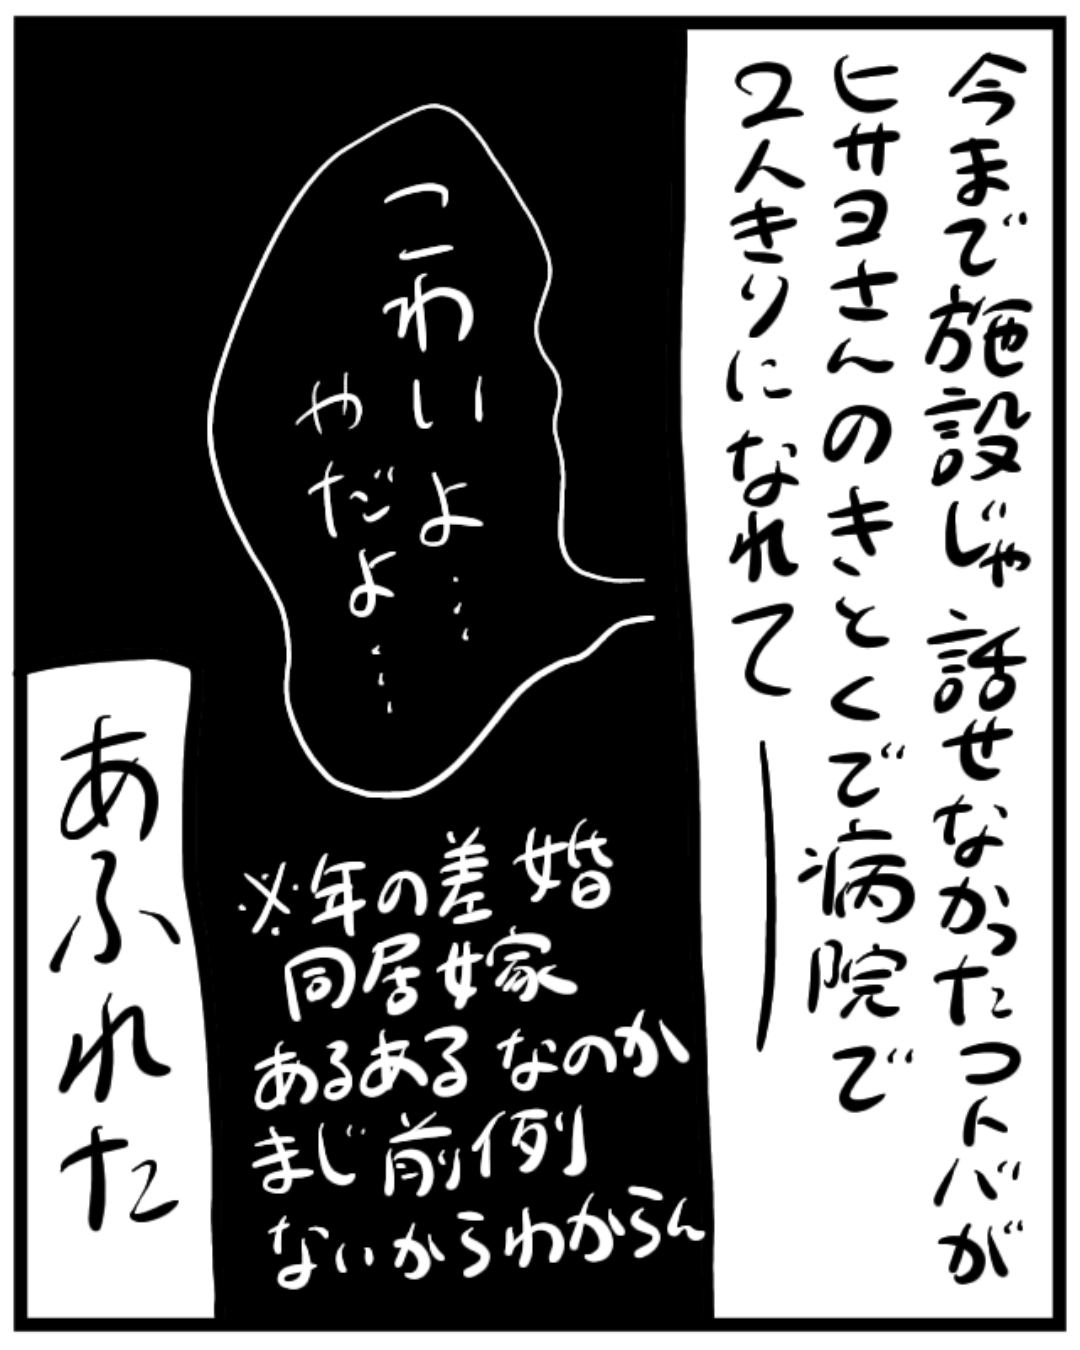 今まで施設じゃ話せなかったコトバが
ヒサヨさんのきとくで病院で
2人きりになれて
こわいよ……
やだよ……
※年の差婚
同居嫁
あるあるなのか
まじ前例
ないからわからん
あふれた